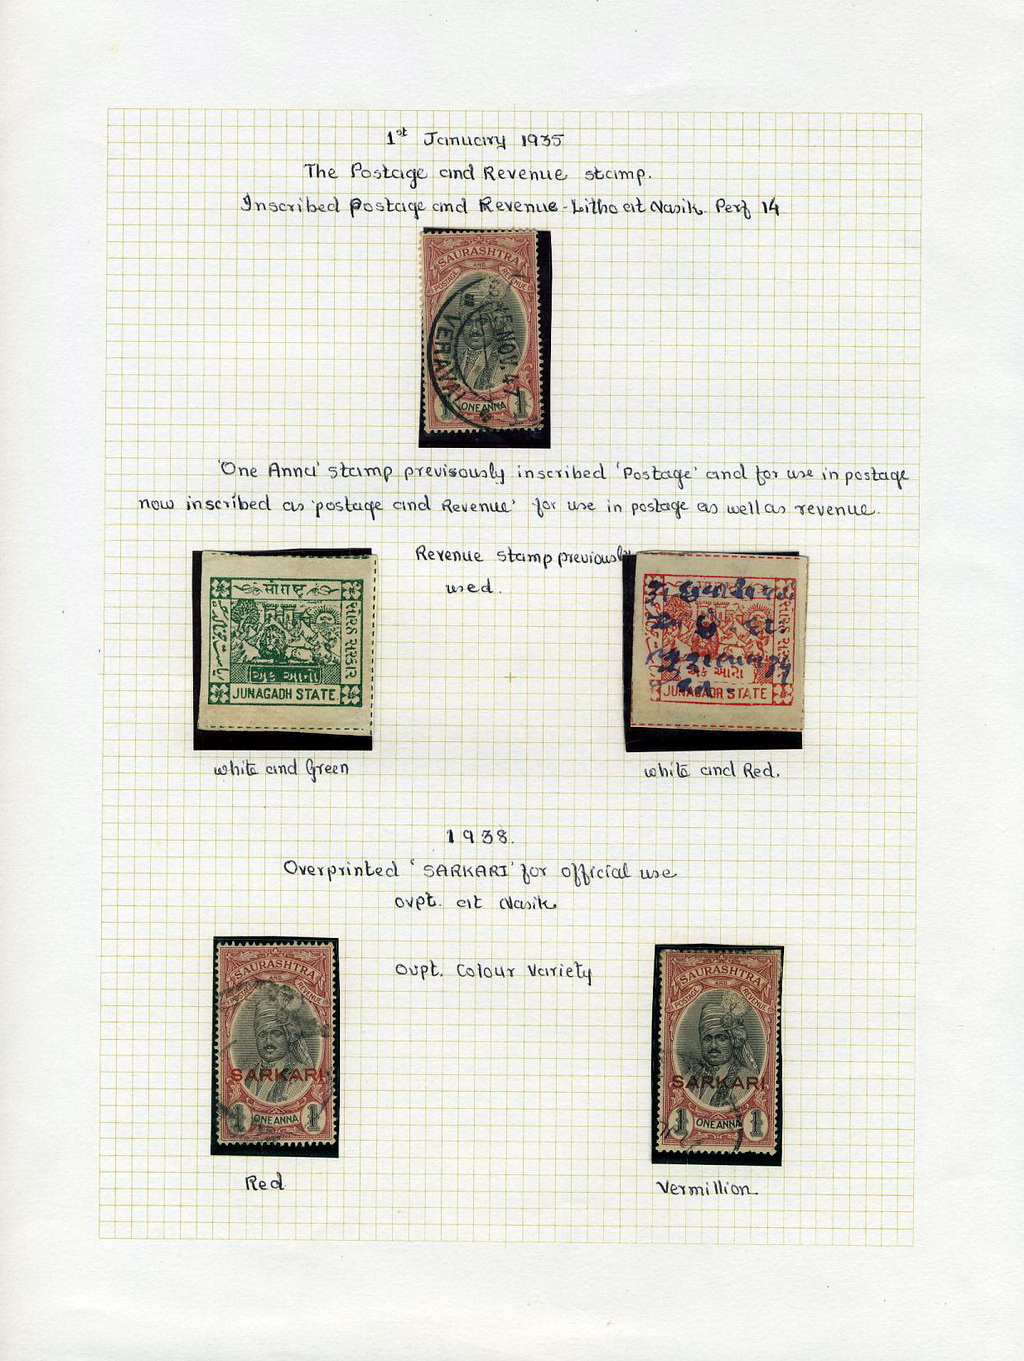 1st January 1935
The Postage and Revenue stamp.
Inscribed Postage and Revenue - Litho at Nasik. Perf 14
SAURASHTRA
POSTAGE AND REVENUE
VERAVAL
5 NOV. 47
1 ONE ANNA 1
'One Anna' stamp previsously inscribed 'Postage' and for use in postage
now inscribed as 'postage and Revenue' for use in postage as well as revenue.
Revenue stamp previously
used.
સોરઠ સરકાર
એક આનો
JUNAGADH STATE
એક આનો
JUNAGADR STATE
white and Green
white and Red.
1938.
Overprinted 'SARKARI' for official use
ovpt. at Nasik
Ovpt. Colour Variety
SAURASHTRA
POSTAGE AND REVENUE
SARKARI
1 ONE ANNA 1
SAURASHTRA
POSTAGE AND REVENUE
SARKARI
1 ONE ANNA 1
Red
Vermillion